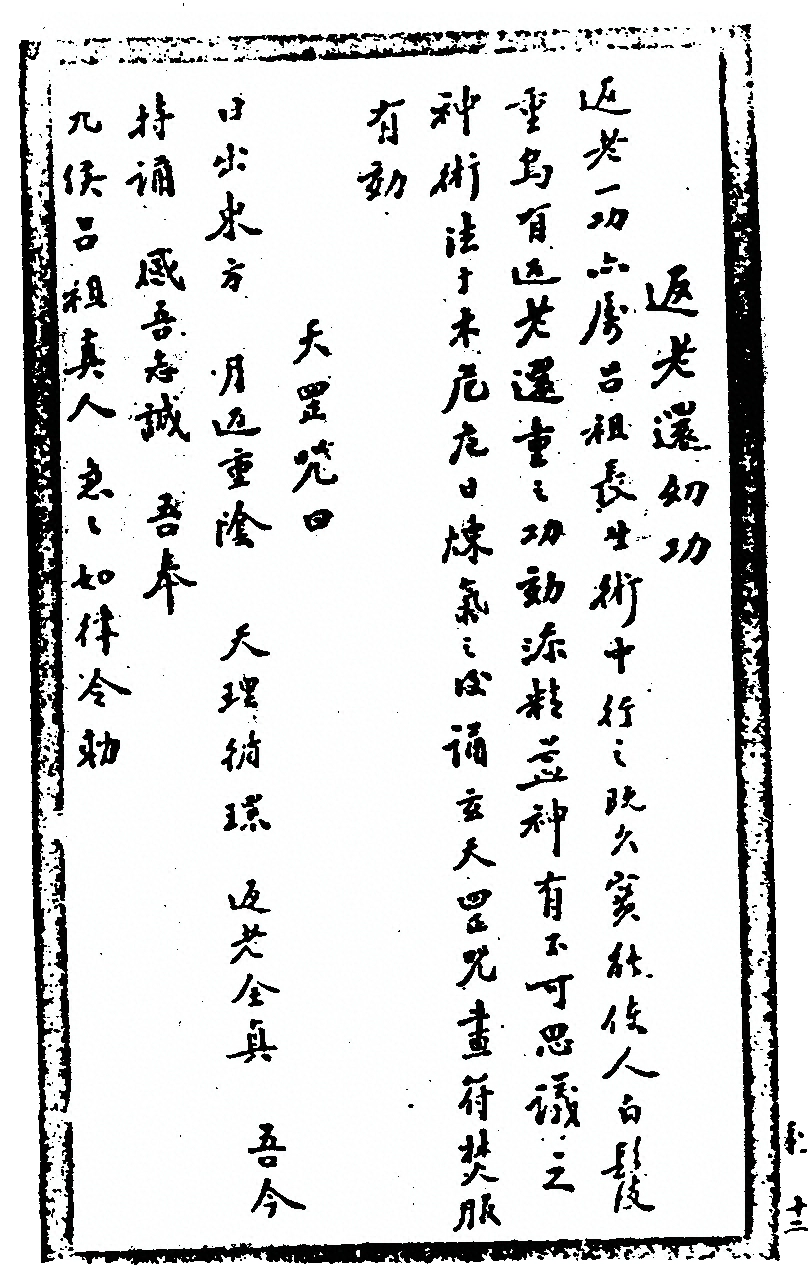 返老還幼功
返老一功亦屬呂祖長生術中行之既久實能使人白髮
重烏有返老還童之功効添精益神有不可思議之
神術法于木危危日煉氣之後誦玄天罡咒畫符焚服
有効
天罡咒曰
日出東方 月返重陰 天理循環 返老全真 吾今
持誦 感吾志誠 吾奉
九侯呂祖真人 急々如律令勅
十二